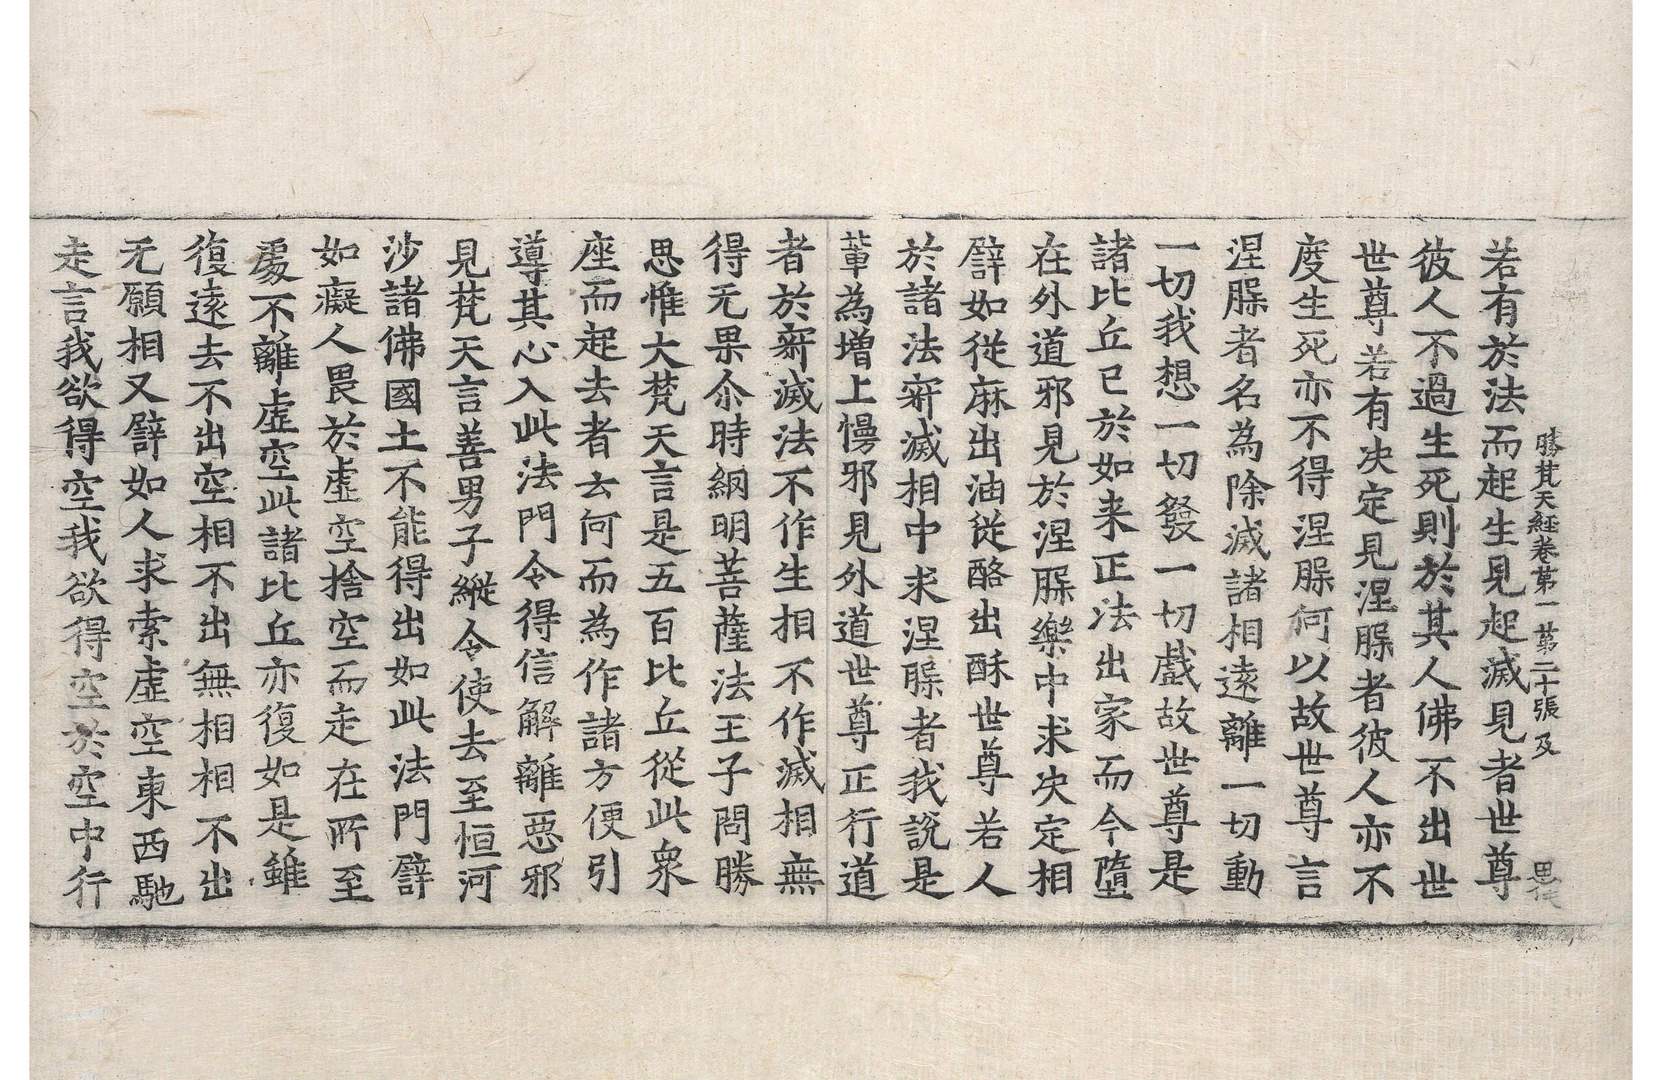 勝梵天經卷第一 第二十張 及
若有於法而起生見起滅見者世尊
彼人不過生死則於其人佛不出世
世尊若有决定見涅脲者彼人亦不
度生死亦不得涅脲何以故世尊言
涅脲者名為除滅諸相遠離一切動
一切我想一切發一切戱故世尊是
諸比丘已於如来正法出家而今墮
在外道邪見於涅脲樂中求决定相
譬如從麻出油從酪出酥世尊若人
於諸法㝛滅相中求涅脲者我說是
軰為增上慢邪見外道世尊正行道
者於㝛滅法不作生相不作滅相無
得无果尒時網明菩薩法王子問勝
思惟大梵天言是五百比丘從此衆
座而起去者云何而為作諸方便引
導其心入此法門令得信解離惡邪
見梵天言善男子縱令使去至恒河
沙諸佛國土不能得出如此法門譬
如癡人畏於虛空捨空而走在所至
處不離虛空此諸比丘亦復如是雖
復遠去不出空相不出無相相不出
无願相又譬如人求索虛空東西馳
走言我欲得空我欲得空於空中行